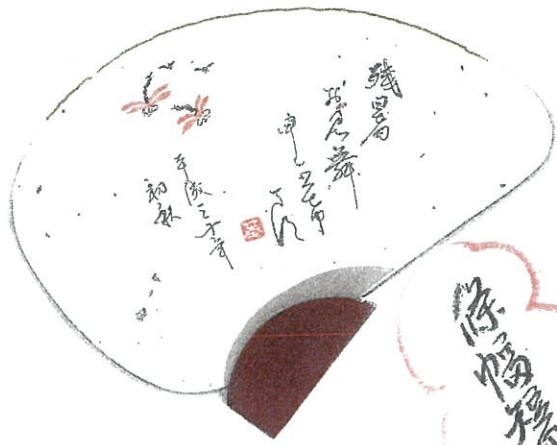 残暑
お見舞
申し上げ
ます
平成三十年
初秋
條幅